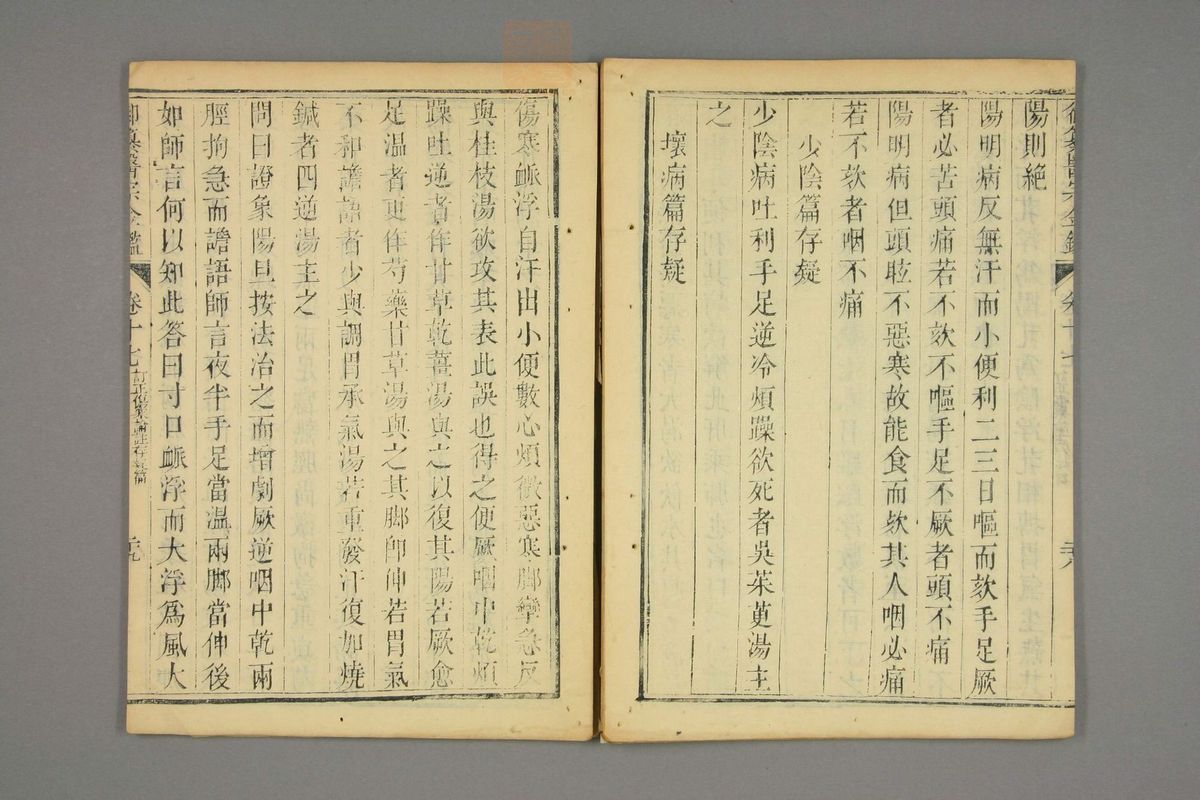 陽則絶
陽明病反無汗而小便利二三日嘔而欬手足厥
者必苦頭痛若不欬不嘔手足不厥者頭不痛
陽明病但頭眩不惡寒故能食而欬其人咽必痛
若不欬者咽不痛
少陰篇存疑
少陰病吐利手足逆冷煩躁欲死者吳茱萸湯主
之
壞病篇存疑
傷寒脈浮自汗出小便數心煩微惡寒脚攣急反
與桂枝湯欲攻其表此誤也得之便厥咽中乾煩
躁吐逆者作甘草乾薑湯與之以復其陽若厥愈
足温者更作芍藥甘草湯與之其脚卽伸若胃氣
不和譫語者少與調胃承氣湯若重發汗復加燒
鍼者四逆湯主之
問曰證象陽旦按法治之而增劇厥逆咽中乾兩
脛拘急而譫語師言夜半手足當温兩脚當伸後
如師言何以知此答曰寸口脈浮而大浮爲風大
御纂醫宗金鑑 卷十七 訂正傷寒論註存疑篇 二十九